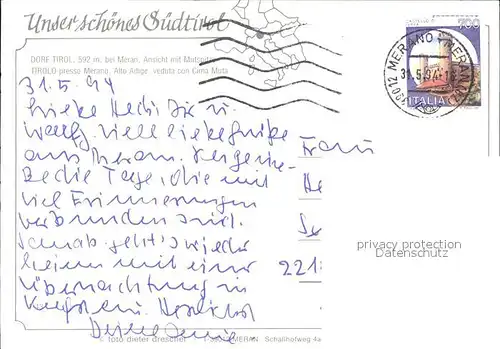 Unser schönes Südtirol
DORF TIROL, 592 m, bei Meran. Ansicht mit Mutspitze
TIROLO presso Merano. Alto Adige - veduta con Cima Muta
700
ITALIA
39012 MERANO - MERAN
31.5.94
31.5.94
viele liebe Grüße
aus Meran.
Tage, die mit
viel Erinnerungen
verbunden sind.
geht's wieder
heim mit einer
Übernachtung in
Kufstein. Herzlichst
Deine
Frau
221
privacy protection
Datenschutz
© foto dieter drescher
MERAN Schallhofweg 4a